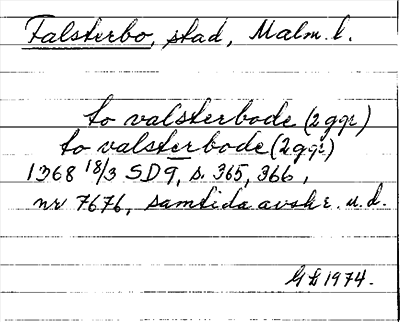 Falsterbo, stad, Malm. l.
to valsterbode (2 ggr)
to valsterbode (2 ggr)
1368 18/3 SD 9, s. 365, 366,
nr 7676, samtida avskr. u.d.
G L 1974.